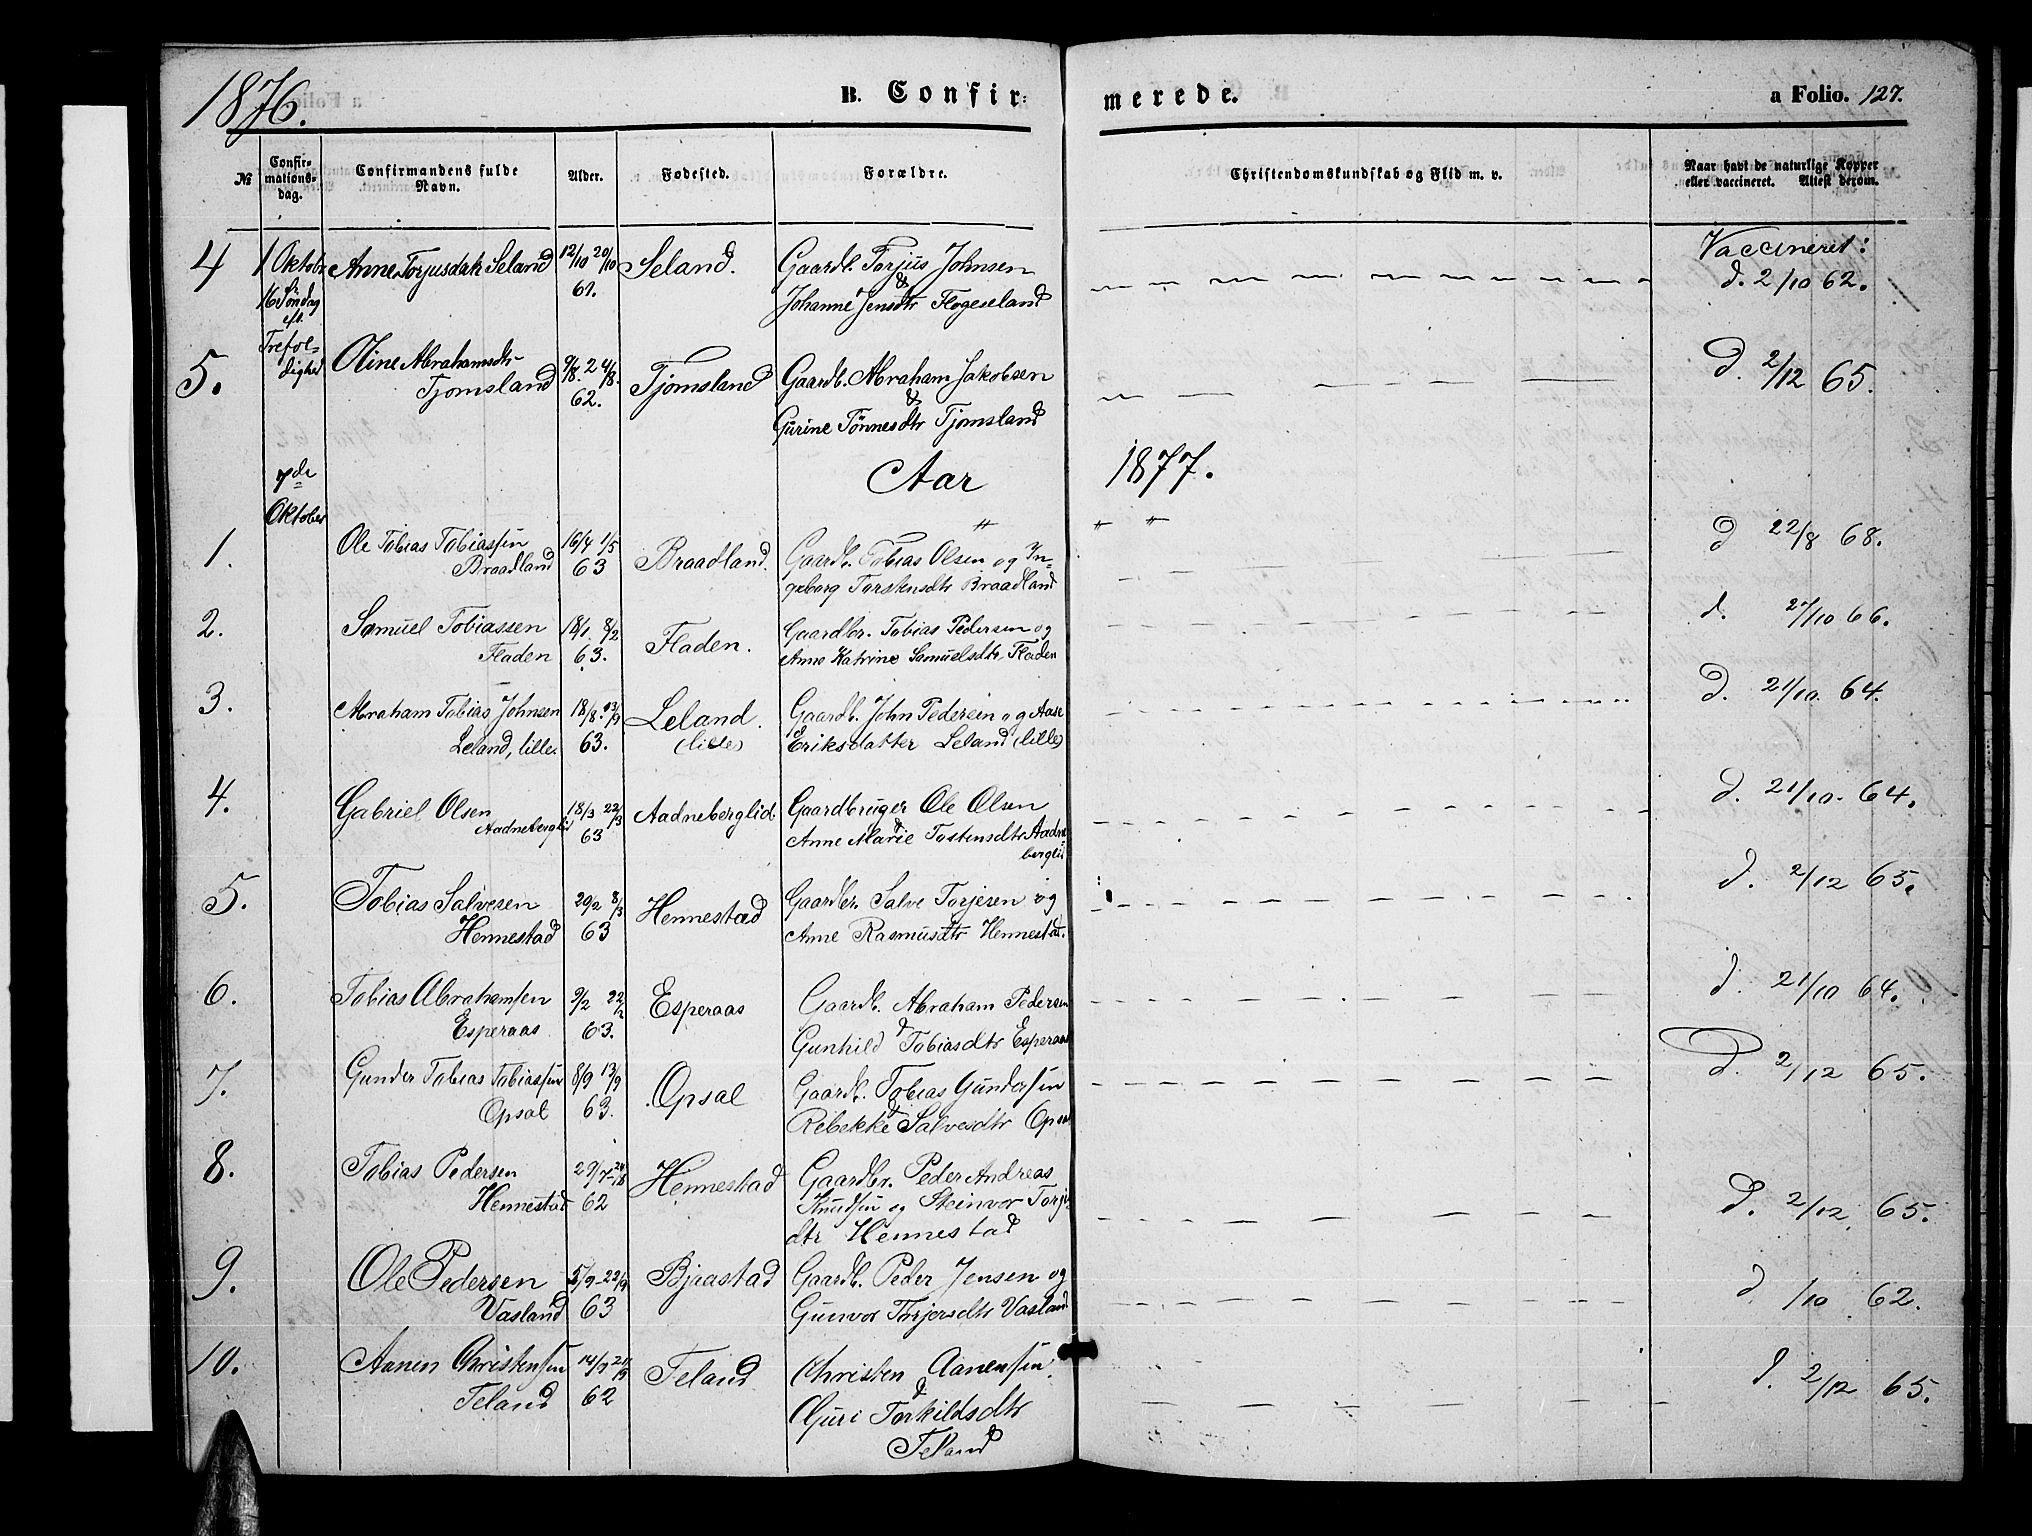 1876.
B. Confir:
merede.
a Folio. 127.
№
Confir-
mations-
dag.
Confirmandens fulde
Navn.
Alder.
Fødested.
Forældre.
Christendomskundskab og Flid m. v.
Naar havt de naturlige Kopper
eller vaccineret. Attest derom.
4
1 Oktobr
16 Søndag
eft.
Trefol=
dighed
Anne Torjusdatr Seland
12/10 20/10
61.
Seland.
Gaardb. Torjus Johnsen
&
Johanne Jensdtr Flogeseland
Vaccineret:
d. 2/10 62.
5.
Oline Abrahamsdtr
Tjomsland
9/8. 24/8.
62.
Tjomsland
Gaardb. Abraham Jakobsen
&
Gurine Tönnesdtr Tjomsland
d. 2/12 65.
7de
Oktober
Aar
1877.
1.
Ole Tobias Tobiassen
Braadland
16/4 1/5
63
Braadland.
Gaardb. Tobias Olsen og In-
geborg Torstensdtr Braadland
d 22/8 68.
2.
Samuel Tobiassen
Fladen
18/1. 8/2
63.
Fladen.
Gaardbr. Tobias Pedersen og
Anne Katrine Samuelsdtr. Fladen
d. 27/10 66.
3.
Abraham Tobias Johnsen
Leland, lille.
18/8. 13/9
63.
Leland.
(lille)
Gaardb. John Pedersen og Aase
Eriksdatter Leland (lille)
d. 21/10. 64.
4.
Gabriel Olsen
Aadneberglid
18/3 22/3
63
Aadneberglid
Gaardbruger Ole Olsen
&
Anne Marie Tostensdtr Aadne=
berglid
d. 21/10. 64.
5.
Tobias Salvesen
Hennestad
29/2 8/3
63
Hennestad
Gaardbr. Salve Torjesen og
Anne Rasmusdtr Hennestad.
d. 2/12 65.
6.
Tobias Abrahamsen
Esperaas
9/2 22/2
63.
Esperaas
Gaardb. Abraham Pedersen
&
Gunhild Tobiasdtr Esperaas
d. 21/10 64.
7.
Gunder Tobias Tobiassen
Opsal
8/9 13/9
63.
Opsal
Gaardb. Tobias Gundersen
&
Rebekke Salvesdtr Opsal
d. 2/12 65.
8.
Tobias Pedersen
Hennestad
29/7-24/8
62
Hennestad
Gaardbr. Peder Andreas
Knudsen og Steinvor Torjs
dtr Hennestad
d. 2/12. 65.
9.
Ole Pedersen
Vasland
5/9-22/9
63
Bjaastad
Gaardb. Peder Jensen og
Gunvor Torjersdtr Vasland
d /10 62.
10.
Aanen Christensen
Teland
14/9 21/9
62
Teland
Christen Aanensen.
&
Guri Torkildsdtr
Teland
d. 2/12 65.